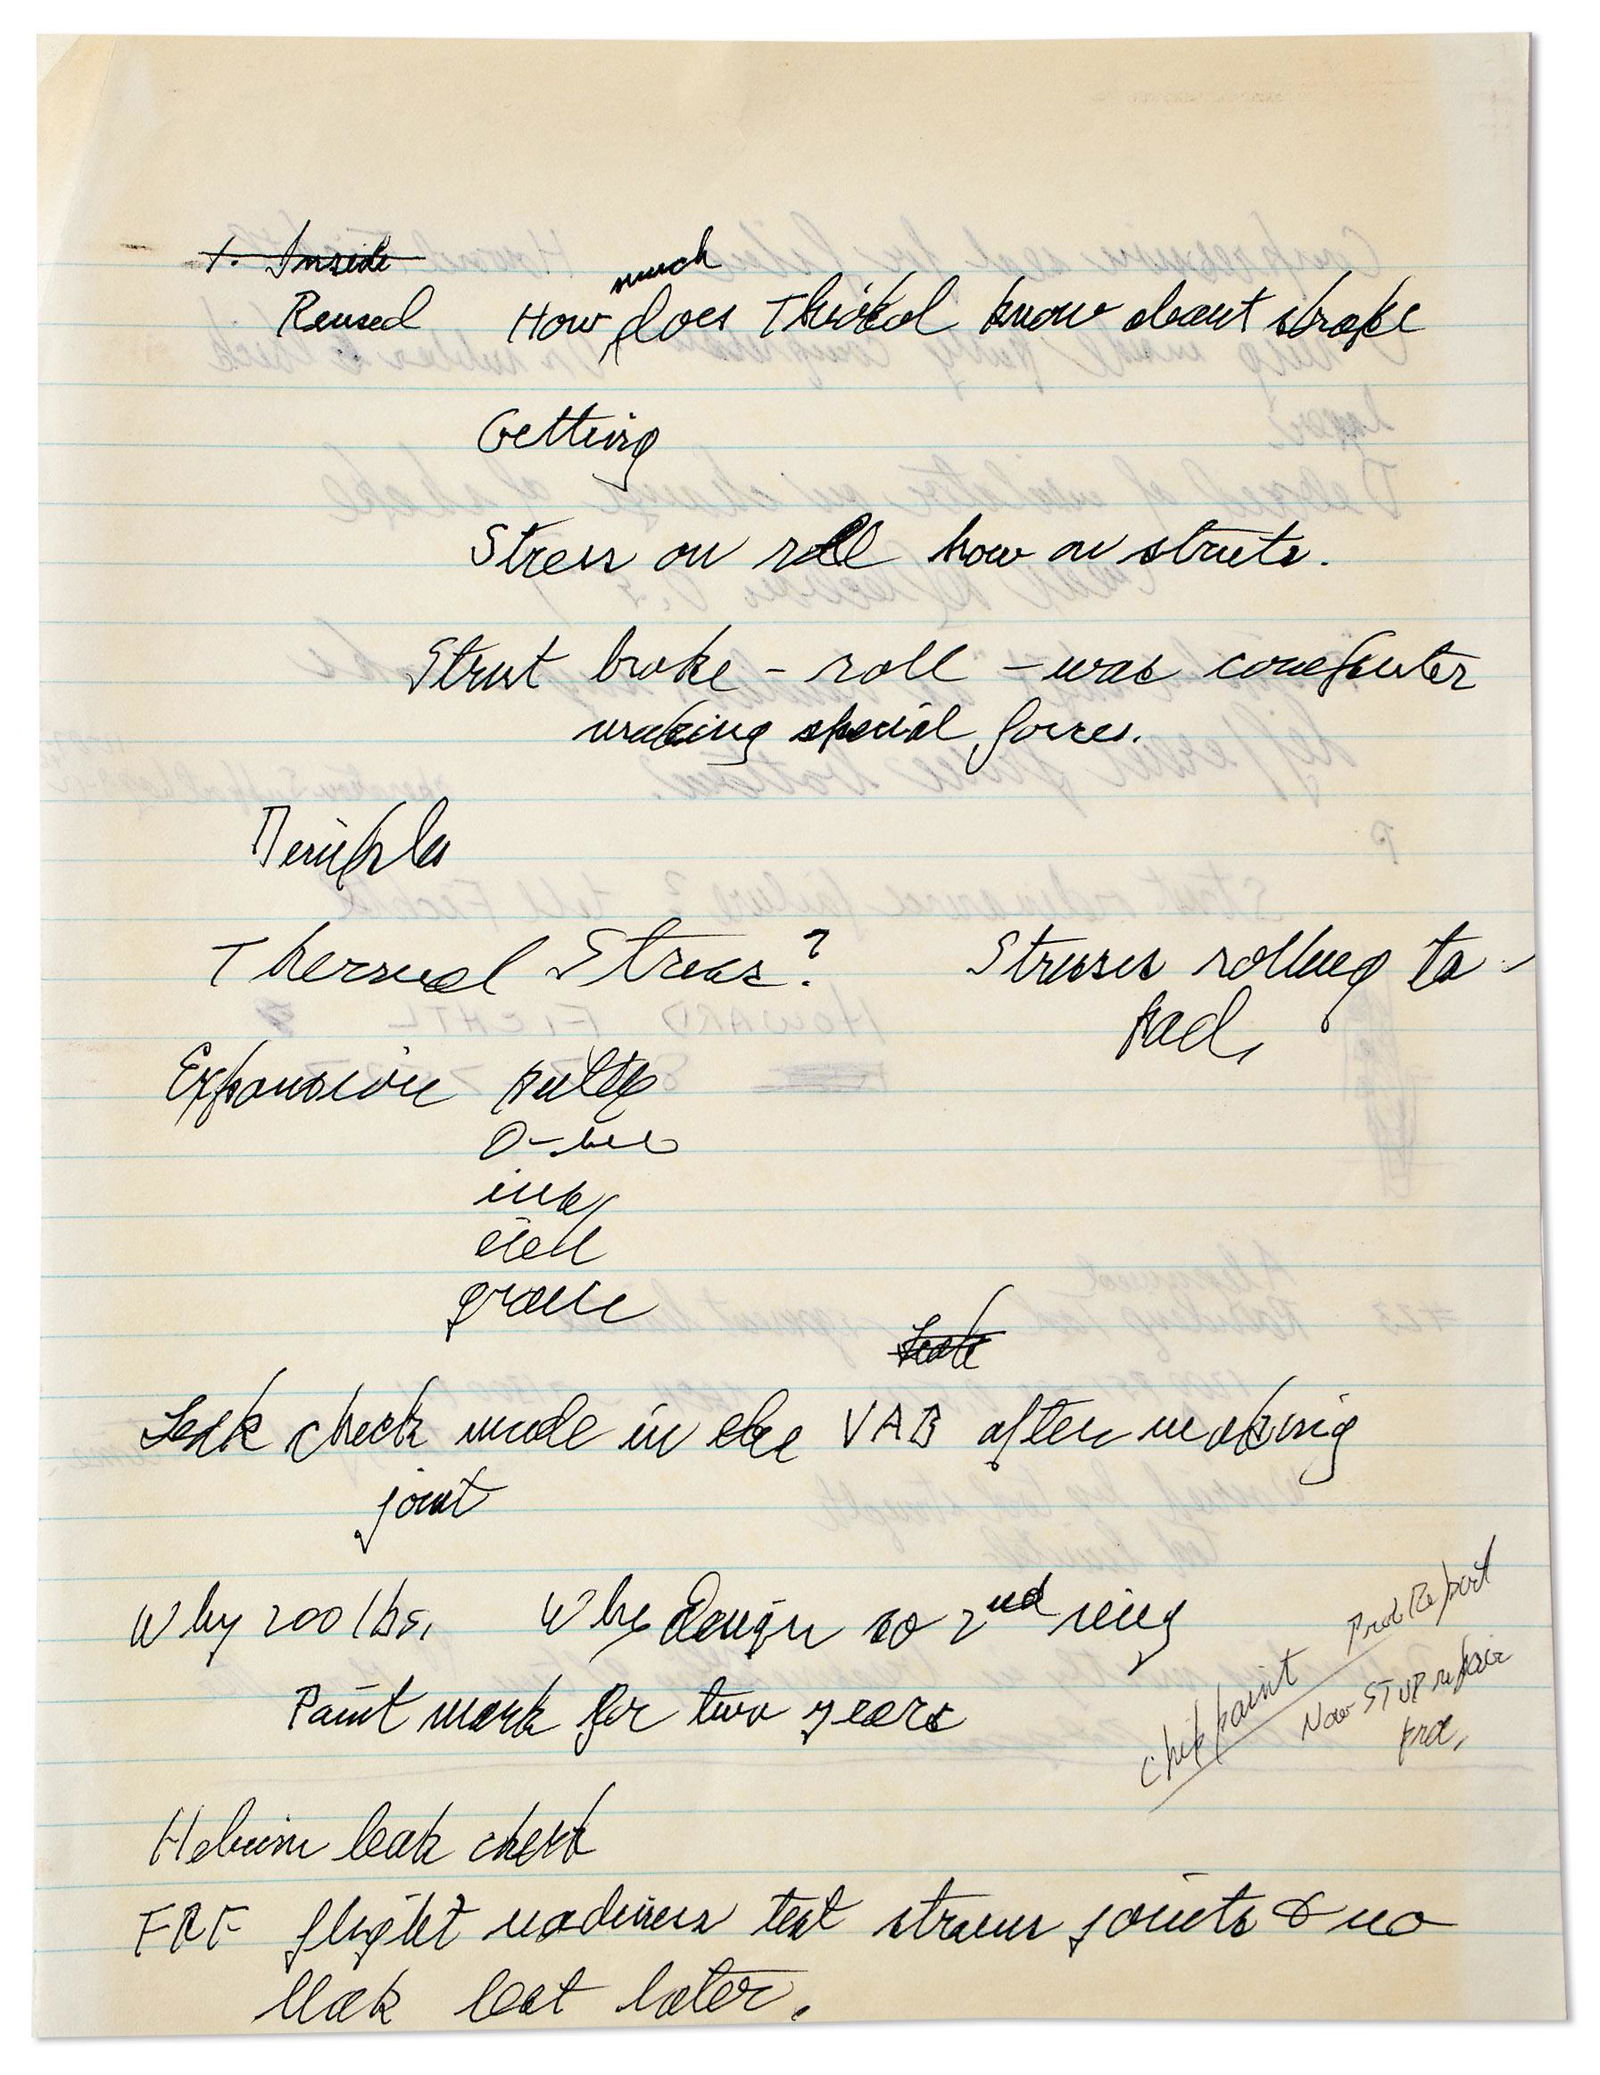 1. Inside
Reused How much does Thiokol know about shape
Getting
Stress on roll how on struts.
Strut broke - roll - was computer
making special forces.
Thermal Stress? Stresses rolling to
pad,
Expansion putty
O-
grease
Leak
Leak check made in the VAB after making
joint
Why 200 lbs, Why design so 2nd ring
Paint mark for two years
chip paint Prob Report
Now STUP repair
Helium leak check
FRF flight readiness test strains joints & no
leak test later.